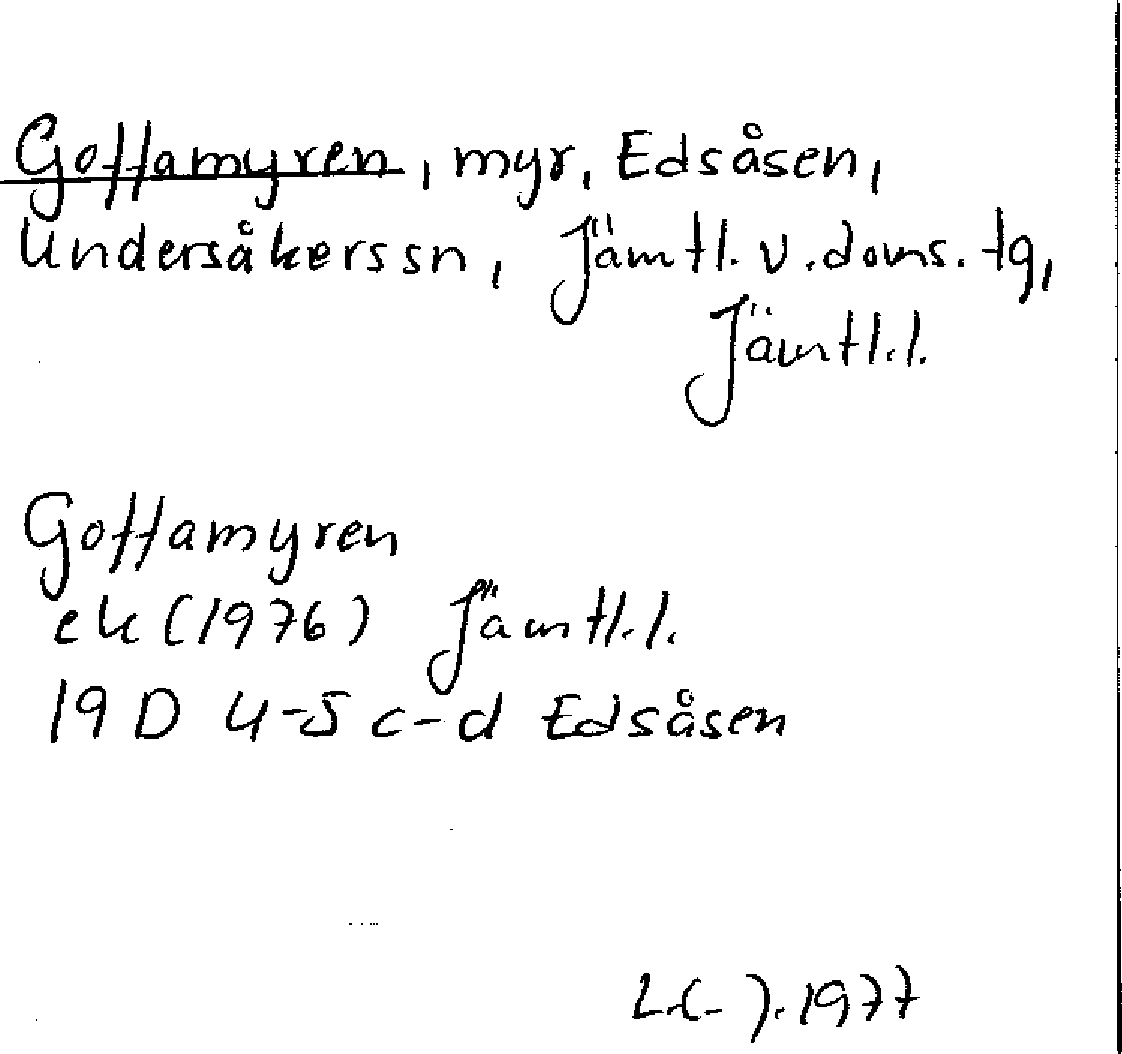 Gottamyren, myr, Edsåsen,
Undersåkers sn, Jämtl. v. doms. tg,
Jämtl. l.
Gottamyren
ek (1976) Jämtl. l.
19 D 4-5 c-d Edsåsen
1977